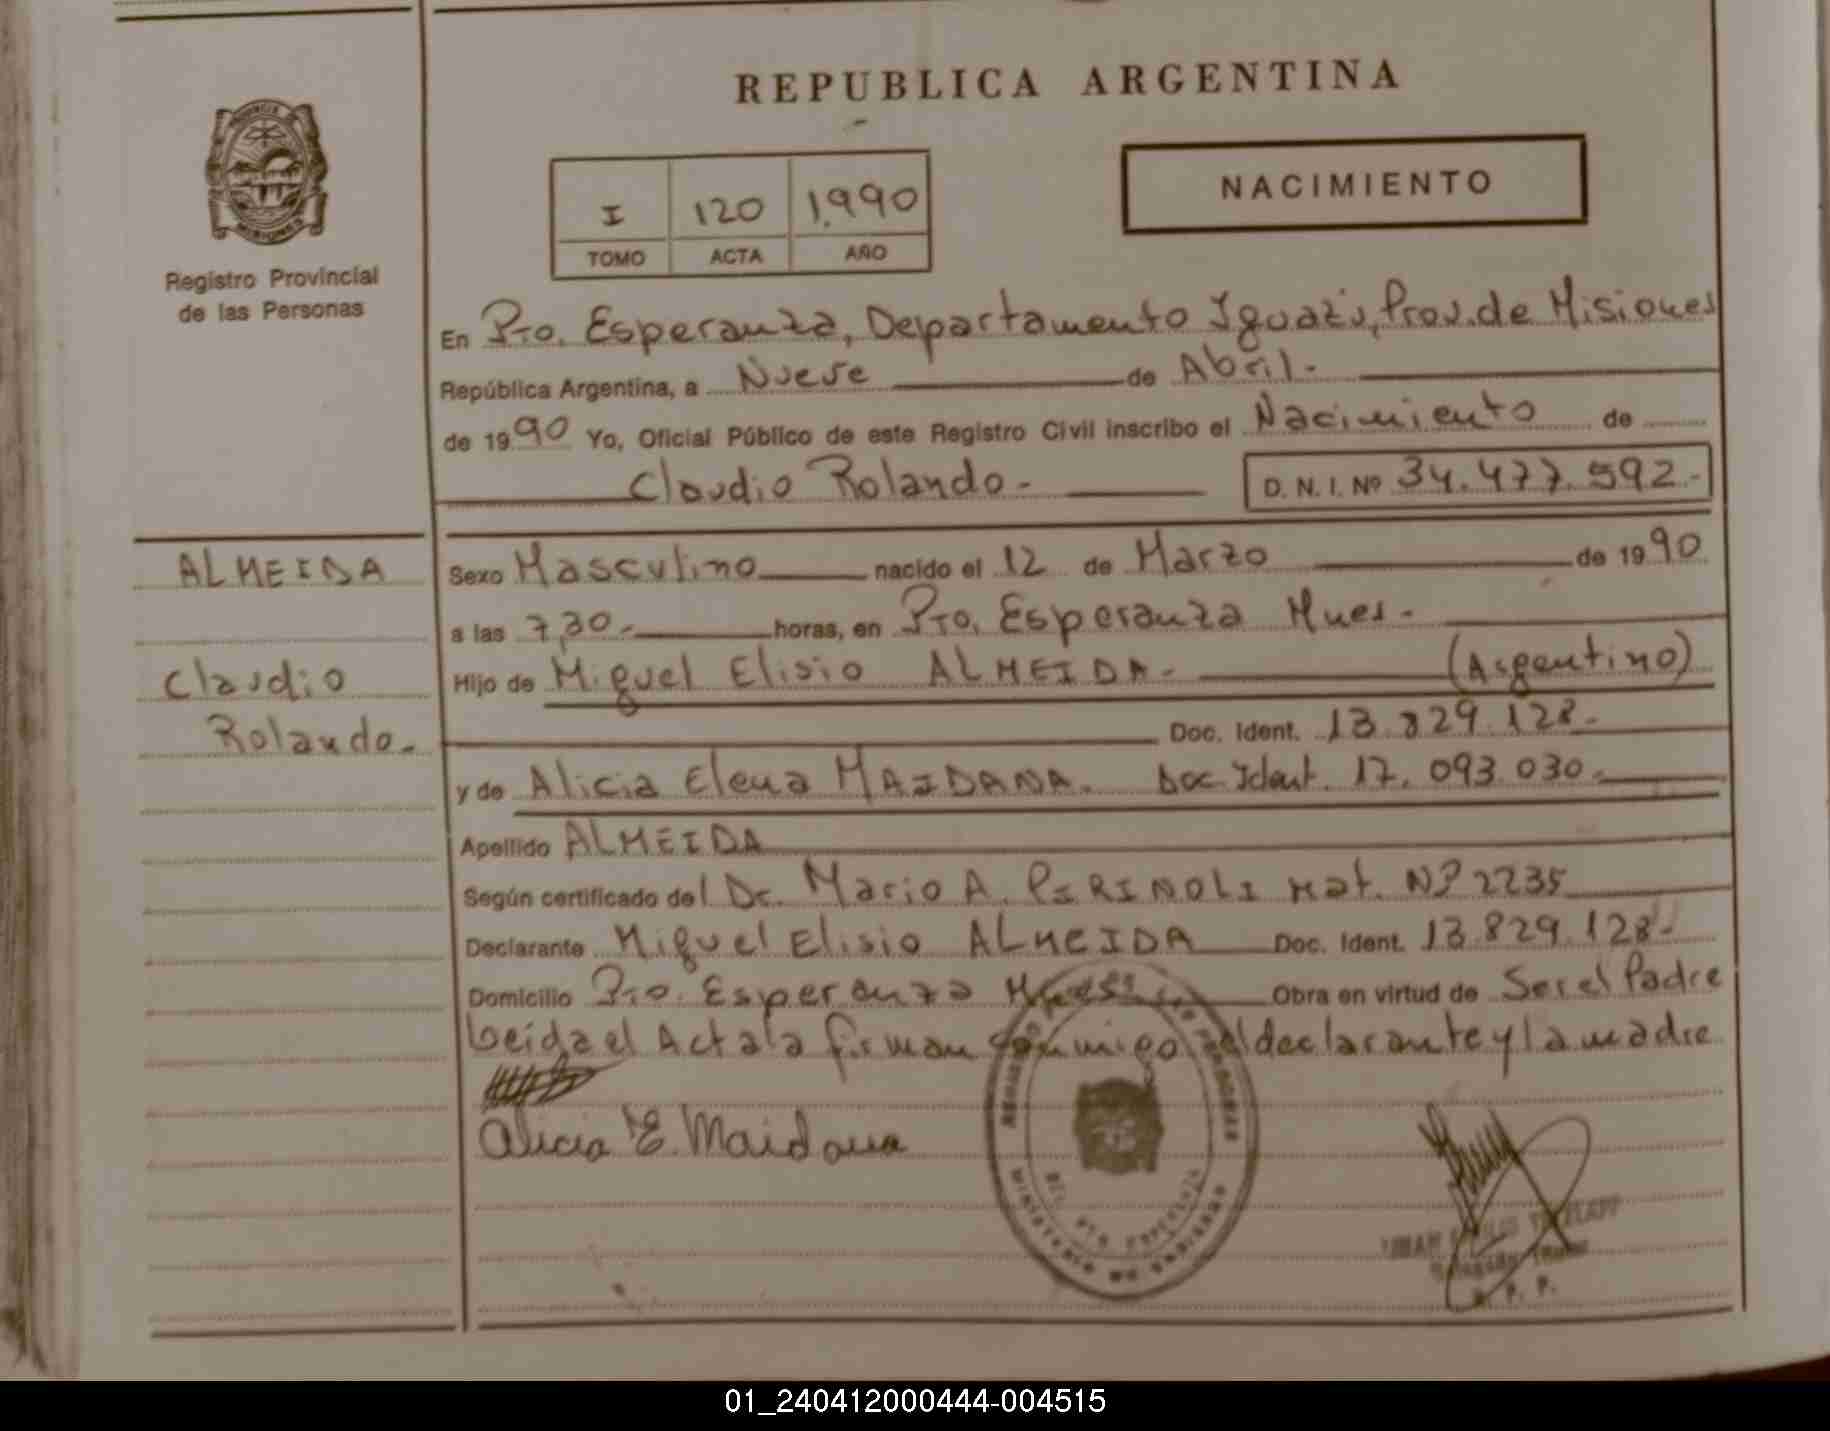 REPUBLICA ARGENTINA
PROVINCIA DE
MISIONES
Registro Provincial
de las Personas
I 120 1.990
TOMO ACTA AÑO
NACIMIENTO
En Pto. Esperanza, Departamento Iguazú, Prov. de Misiones
República Argentina, a Nueve de Abril.-
de 1990 Yo, Oficial Público de este Registro Civil inscribo el Nacimiento de
Claudio Rolando.- D. N. I. Nº 34.477.592.-
ALMEIDA
Claudio
Rolando.-
Sexo Masculino nacido el 12 de Marzo de 1990
a las 7,30.- horas, en Pto. Esperanza Mnes.-
Hijo de Miguel Elisio ALMEIDA.- (Argentino)
Doc. Ident. 13.829.128.-
y de Alicia Elena MAIDANA. Doc. Ident. 17.093.030.-
Apellido ALMEIDA
Según certificado del Dr. Mario A. PIRINOLI Mat. Nº 2235
Declarante Miguel Elisio ALMEIDA Doc. Ident. 13.829.128-
Domicilio Pto. Esperanza Mnes. Obra en virtud de Ser el Padre
Leída el Acta la firman conmigo el declarante y la madre
Alicia E. Maidana
REGISTRO DE LAS PERSONAS
DEL. PTO. ESPERANZA
MINISTERIO DE GOBIERNO
01_240412000444-004515